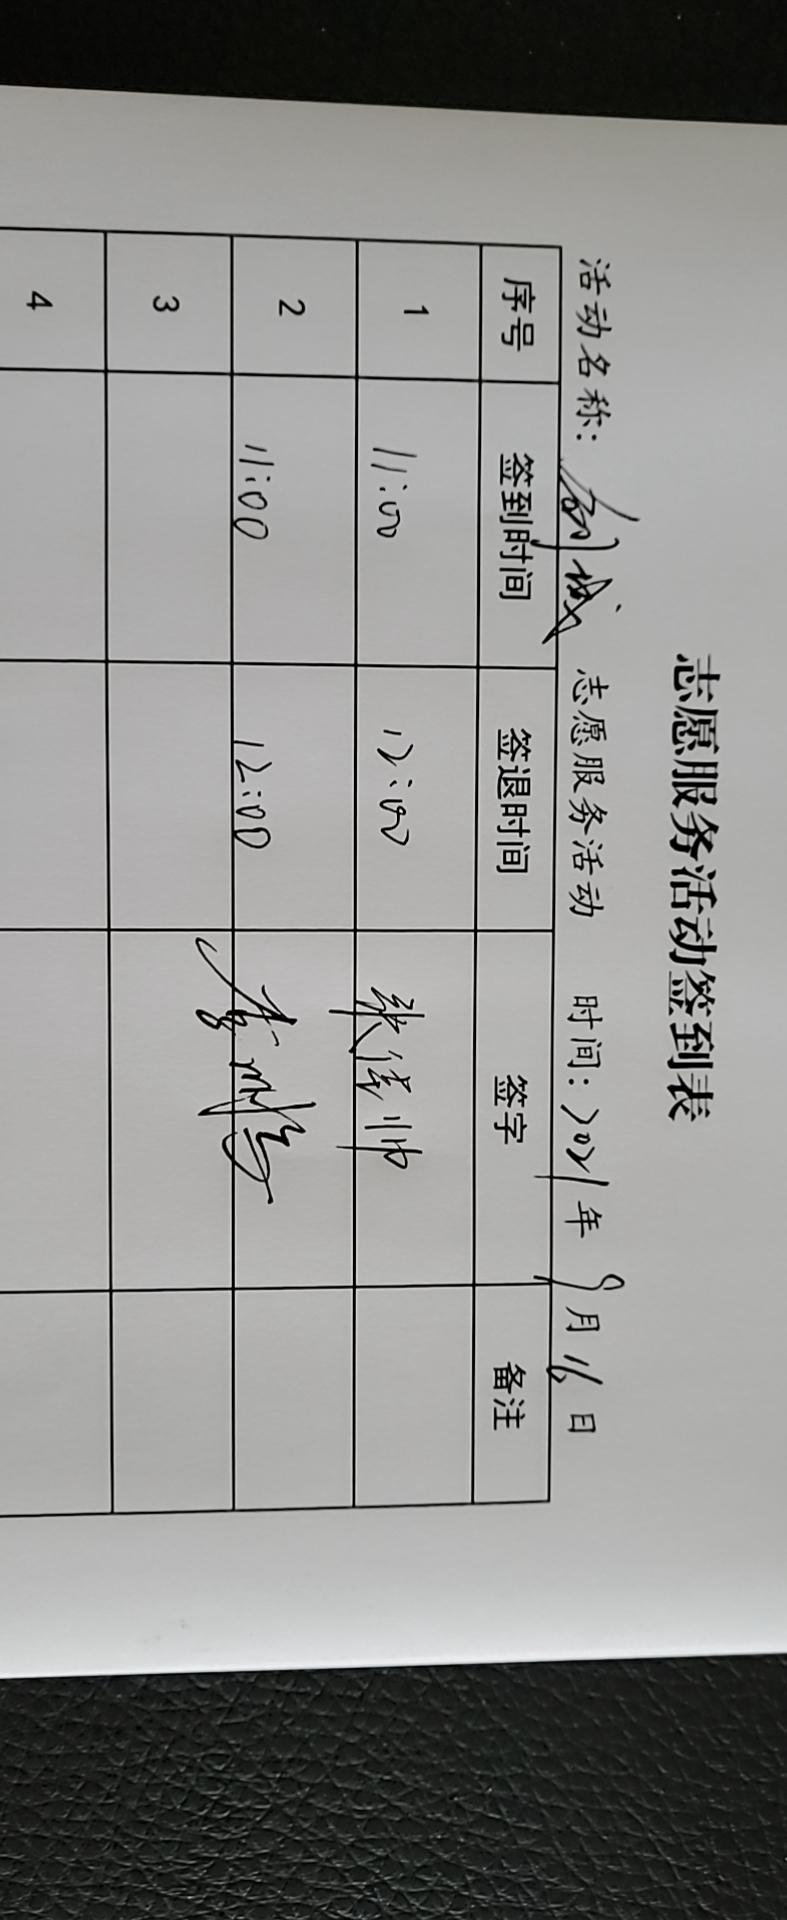 志愿服务活动签到表
活动名称: 创城 志愿服务活动 时间: 2021年 9月 16日
序号 签到时间 签退时间 签字 备注
1 11:00 12:00 张佳帅
2 11:00 12:00 李
3
4